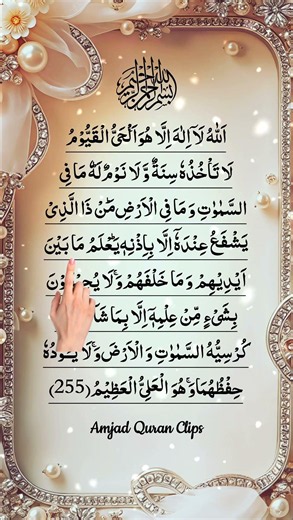 بسم الله الرحمن الرحيم
اَللّٰهُ لَاۤ اِلٰهَ اِلَّا هُوَ اَلْحَیُّ الْقَیُّوْمُ
لَا تَاْخُذُهٗ سِنَةٌ وَّ لَا نَوْمٌ لَهٗ مَا فِی
السَّمٰوٰتِ وَ مَا فِی الْاَرْضِ مَنْ ذَا الَّذِیْ
یَشْفَعُ عِنْدَهٗۤ اِلَّا بِاِذْنِهٖ یَعْلَمُ مَا بَیْنَ
اَیْدِیْهِمْ وَ مَا خَلْفَهُمْ وَ لَا
بِشَیْءٍ مِّنْ عِلْمِهٖۤ اِلَّا بِمَا
كُرْسِیُّهُ السَّمٰوٰتِ وَ الْاَرْضَ وَ لَا یَـُٔوْدُهٗ
حِفْظُهُمَا وَ هُوَ الْعَلِیُّ الْعَظِیْمُ (255)
Amjad Quran Clips